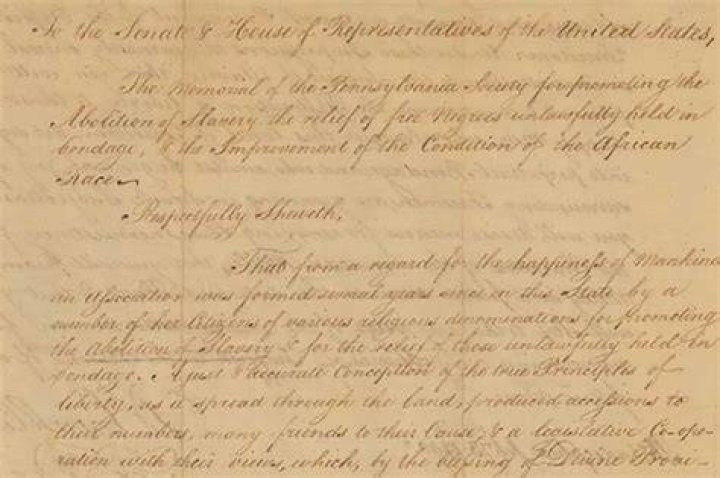 To the Senate & House of Representatives of the United States,
The Memorial of the Pennsylvania Society for promoting the
Abolition of Slavery the relief of free Negroes unlawfully held in
bondage, & the Improvement of the Condition of the African
Race—
Respectfully Sheweth,
That from a regard for the happiness of Mankind
an Association was formed several years since in this State by a
number of her Citizens of various religious denominations for promoting
the Abolition of Slavery & for the relief of those unlawfully held in
bondage. A just & accurate Conception of the true Principles of
liberty, as it spread through the land, produced accessions to
their numbers, many friends to their Cause, & a legislative Co-ope-
ration with their views, which, by the blessing of Divine Provi-